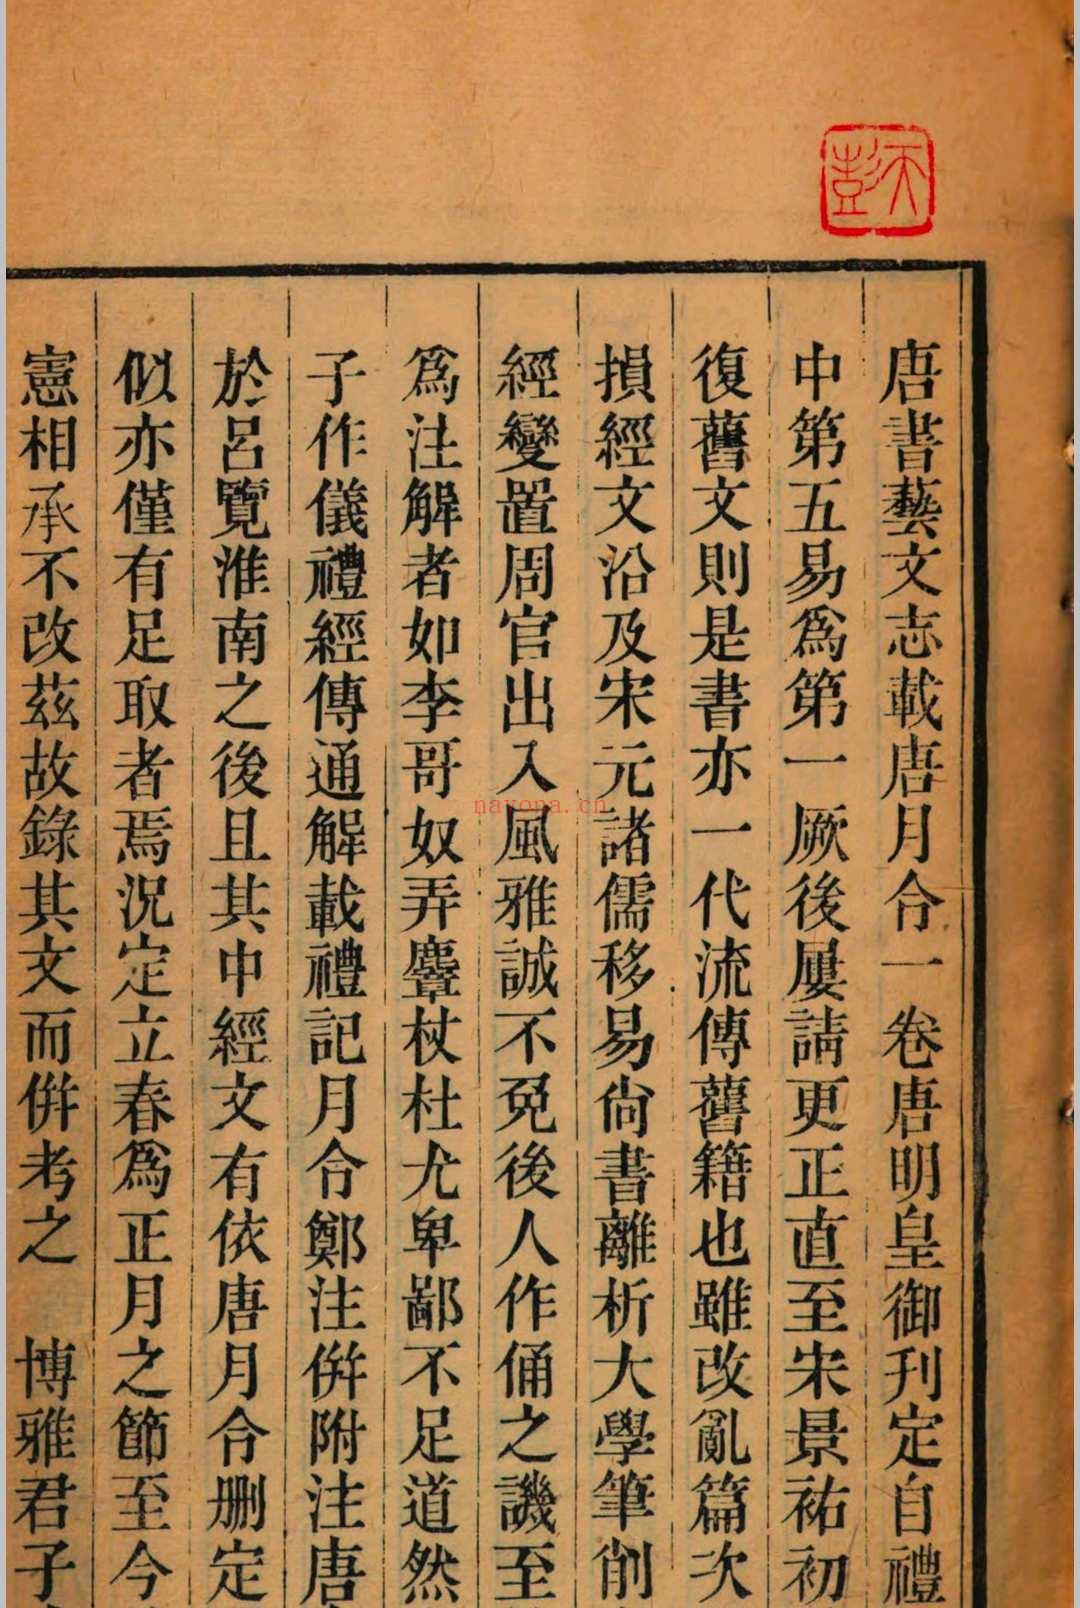 唐書藝文志載唐月令一卷唐明皇御刊定自禮
中第五易爲第一厥後屢請更正直至宋景祐初
復舊文則是書亦一代流傳舊籍也雖改亂篇次
損經文沿及宋元諸儒移易尙書離析大學筆削
經變置周官出入風雅誠不免後人作俑之譏至
爲注解者如李哥奴弄麞杖杜尤卑鄙不足道然
子作儀禮經傳通解載禮記月令鄭注併附注唐
於呂覽淮南之後且其中經文有依唐月令删定
似亦僅有足取者焉況定立春爲正月之節至今
憲相承不改茲故錄其文而併考之 博雅君子
nayona.cn